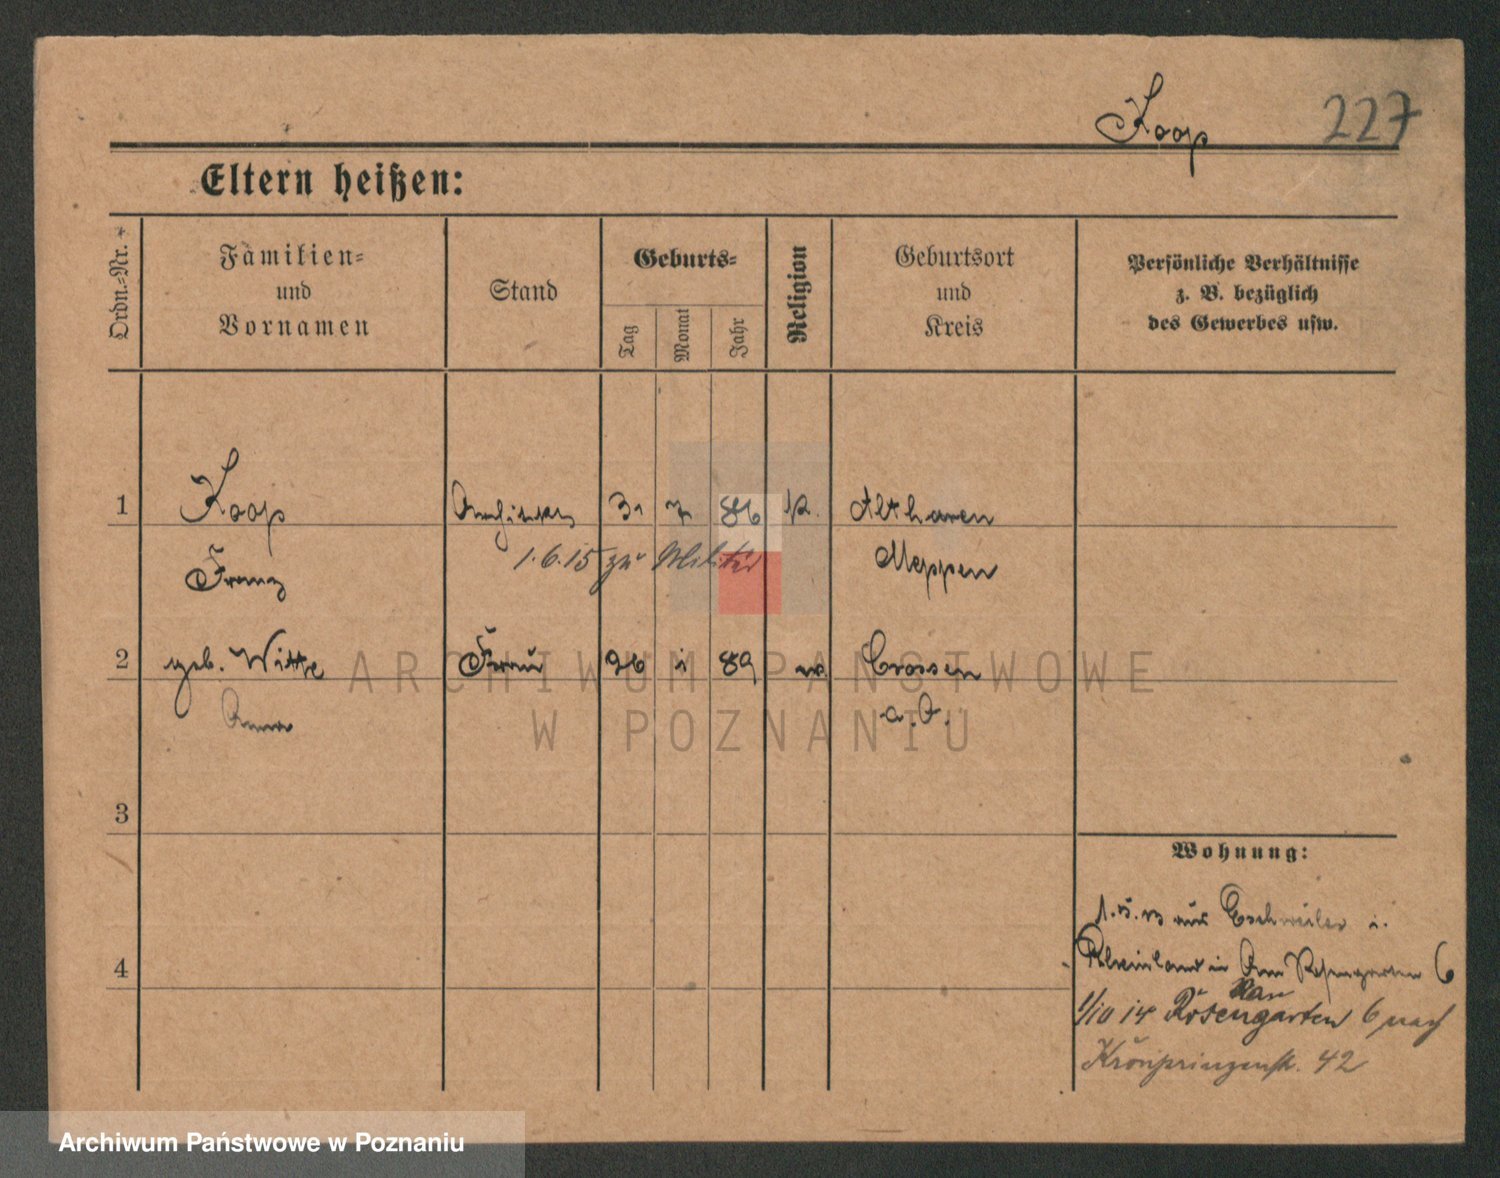 Koop 227
Eltern heißen:
Ordn.-Nr.
Familien-
und
Vornamen
Stand
Geburts-
Tag
Monat
Jahr
Religion
Geburtsort
und
Kreis
Persönliche Verhältnisse
z. B. bezüglich
des Gewerbes usw.
1 Koop Architekt 31 7 86 k. Altharen
1.6.15 zu Militär
Franz Meppen
2 geb. Witte Frau 26 1 89 Crossen
Anna a. O.
3
4
Wohnung:
Eschweiler i.
Rheinland in Am Rosengarten 6
1/10 14 Rosengarten 6 nach
Kronprinzenstr. 42
ARCHIWUM PAŃSTWOWE
W POZNANIU
Archiwum Państwowe w Poznaniu